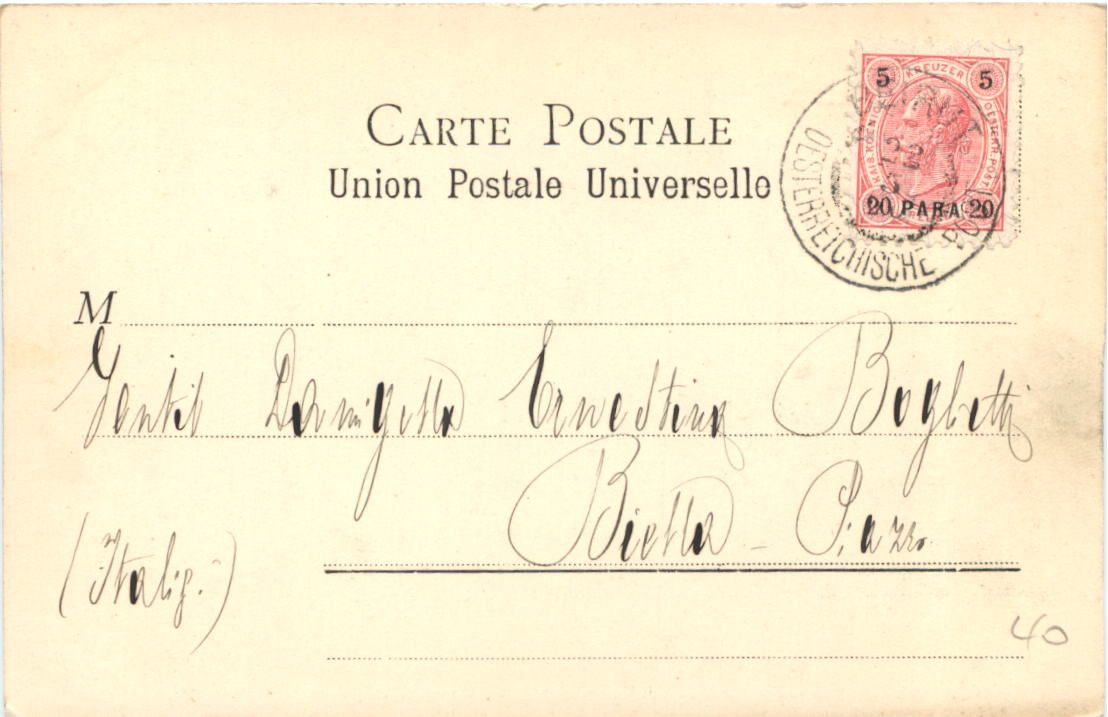 CARTE POSTALE
Union Postale Universelle
5 KREUZER 5
KAIS. KOENIGL. OESTERR. POST.
20 PARA 20
OESTERREICHISCHE POST
M
Gentil Damigella Ernestina Boglietti
Biella - Piazzo
(Italia.)
40